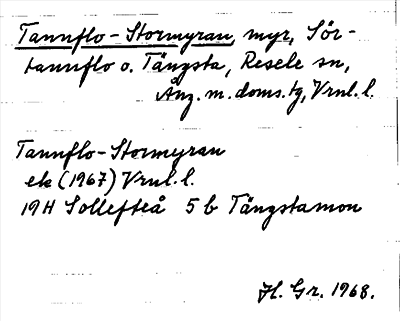 Tannflo-Stormyran, myr, Sör-
tannflo o. Tängsta, Resele sn,
Ånz. m. doms.tg, Vrnl. l.
Tannflo-Stormyran
ek (1967) Vrnl. l.
19H Sollefteå 5 b Tängstamon
Hl. Gr. 1968.